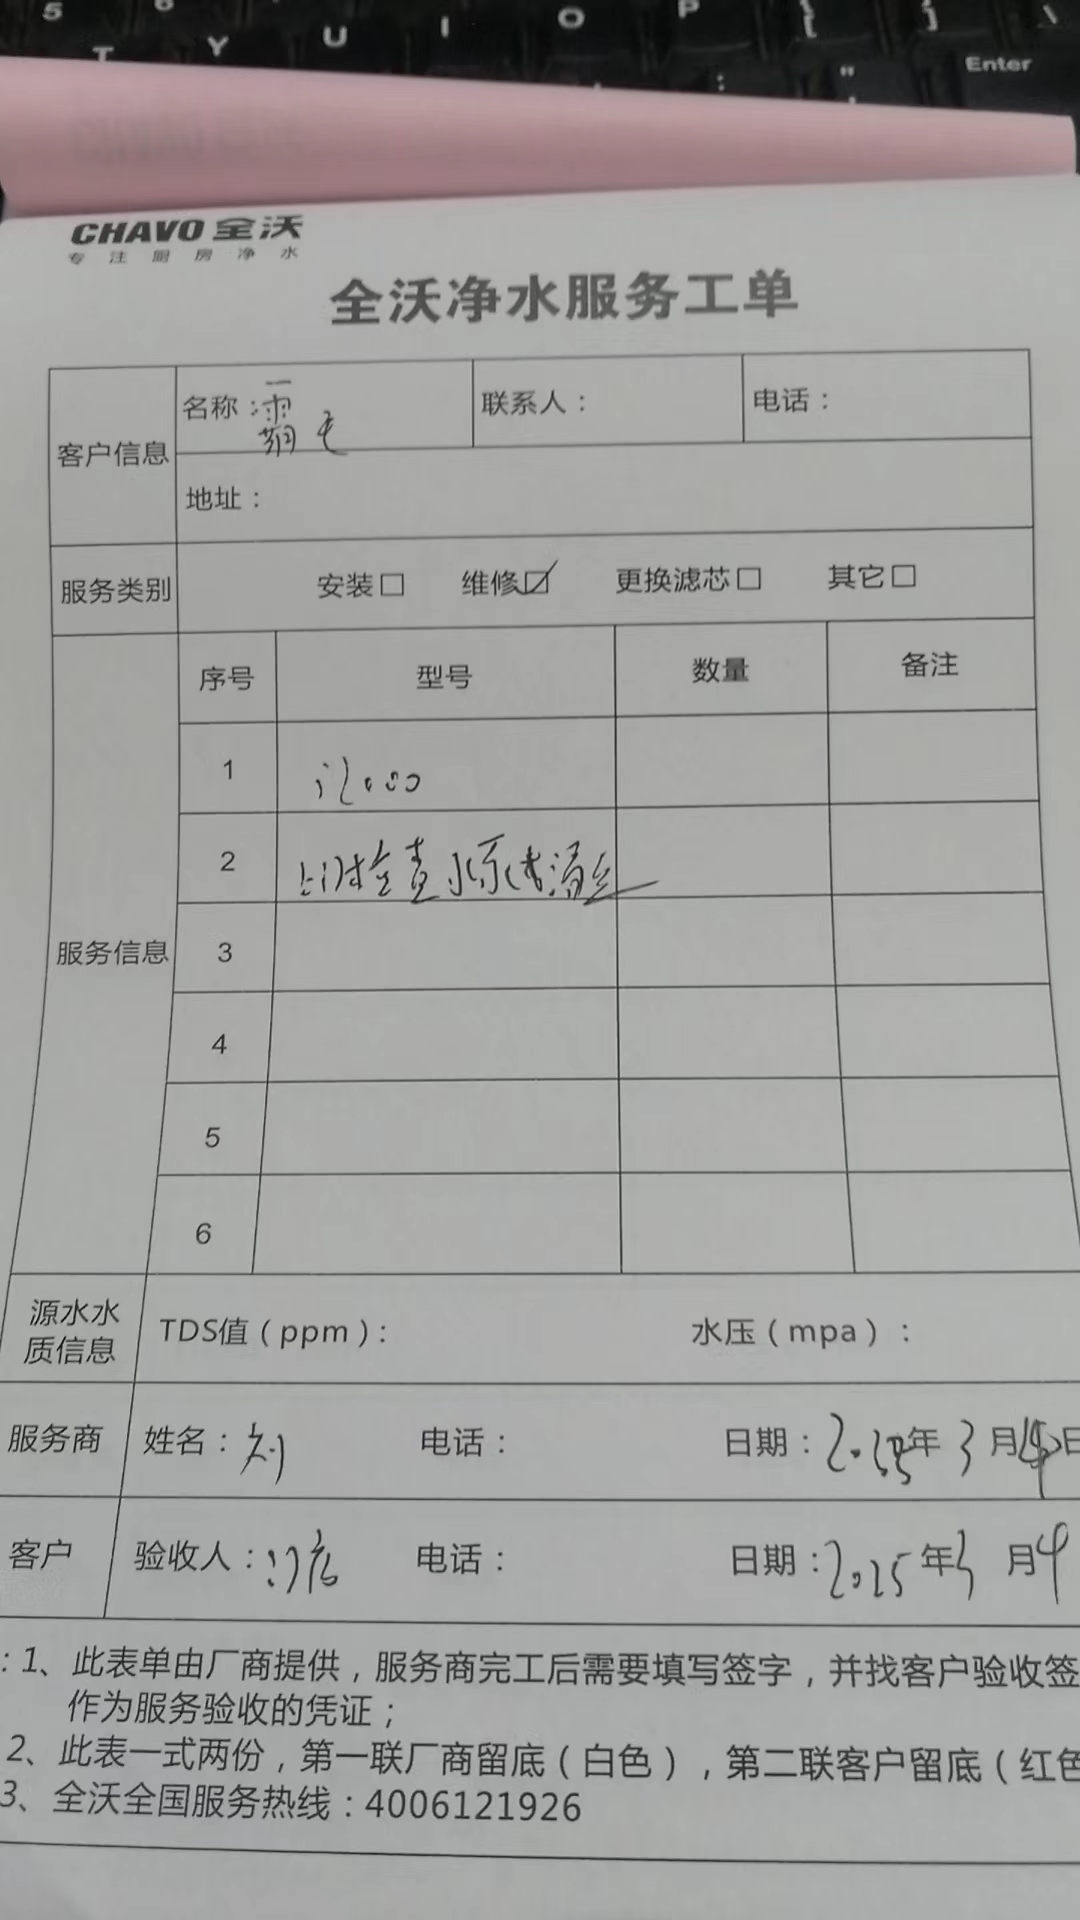 5 6
T Y U I O P { [ } ] \
: " Enter
CHAVO 全沃
专注厨房净水
全沃净水服务工单
客户信息 名称: 联系人: 电话:
地址:
服务类别 安装□ 维修☑ 更换滤芯□ 其它□
服务信息 序号 型号 数量 备注
1
2 检查
3
4
5
6
源水水质信息 TDS值(ppm): 水压(mpa):
服务商 姓名:刘 电话: 日期:2025年3月 日
客户 验收人: 电话: 日期:2025年3月4
:1、此表单由厂商提供,服务商完工后需要填写签字,并找客户验收签
作为服务验收的凭证;
2、此表一式两份,第一联厂商留底(白色),第二联客户留底(红色
3、全沃全国服务热线:4006121926